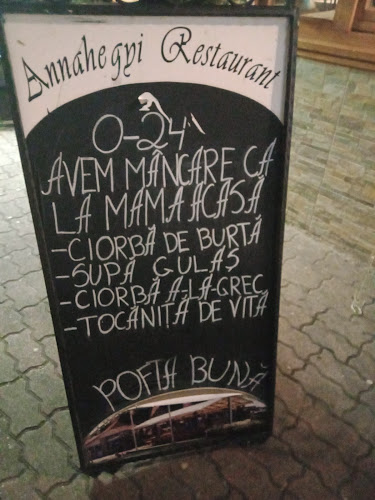 Annahegyi Restaurant
0-24
AVEM MÂNCARE CA
LA MAMA ACASĂ
-CIORBĂ DE BURTĂ
-SUPĂ GULAȘ
-CIORBĂ A-LA-GREC
-TOCĂNIȚĂ DE VITĂ
POFTĂ BUNĂ